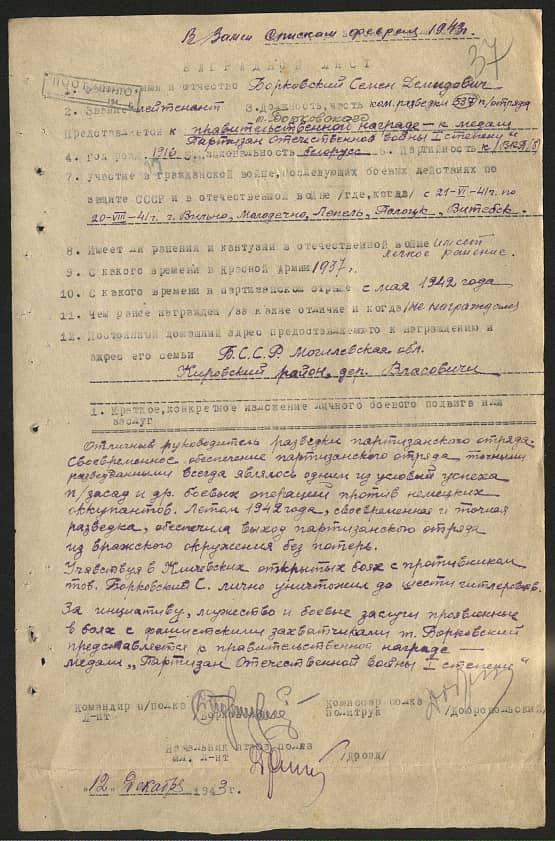 В Замен Опискам февраля 1943г.
37
НАГРАДНОЙ ЛИСТ
имя и отчество Борковский Семен Демидович
2. Звание лейтенант 3. Должность, часть ком. разведки 537 п/отряда
Представляется к правительственной награде – к медали
"Партизан Отечественной войны I степени"
4. год рожд. 1916 5. национальность белорус 6. Партийность к/ВКП(б)
7. участие в гражданской войне, последующих боевых действиях по
защите СССР и в отечественной войне /где, когда/ с 21-VI-41г. по
20-VIII-41г. г. Вильно, Молодечно, Лепель, Полоцк, Витебск.
8. Имеет ли ранения и контузии в отечественной войне имеет
легкое ранение.
9. С какого времени в Красной Армии 1937г.
10. С какого времени в партизанском отряде с мая 1942 года
11. Чем ранее награжден /за какие отличие и когда/ не награждался
12. Постоянный домашний адрес представляемого к награждению и
адрес его семьи Б.С.С.Р. Могилевская обл.
Кировский район, дер. Власовичи
1. Краткое, конкретное изложение личного боевого подвига или
заслуг
Отличный руководитель разведки партизанского отряда.
Своевременное обеспечение партизанского отряда точными
разведданными всегда являлось одним из условий успеха
п/засад и др. боевых операций против немецких
оккупантов. Летом 1942 года, своевременная и точная
разведка, обеспечила выход партизанского отряда
из вражского окружения без потерь.
Участвуя в Кличевских открытых боях с противником
тов. Борковский С. лично уничтожил до шести гитлеровцев.
За инициативу, мужество и боевые заслуги проявленные
в боях с фашистскими захватчиками т. Борковский
представляется к правительственной награде –
медали "Партизан Отечественной войны I степени"
Командир п/полка Комиссар полка
Л-нт политрук /Добропольский/
Начальник штаба полка
мл. л-нт /Дрозд/
"12" Декабря 1943г.